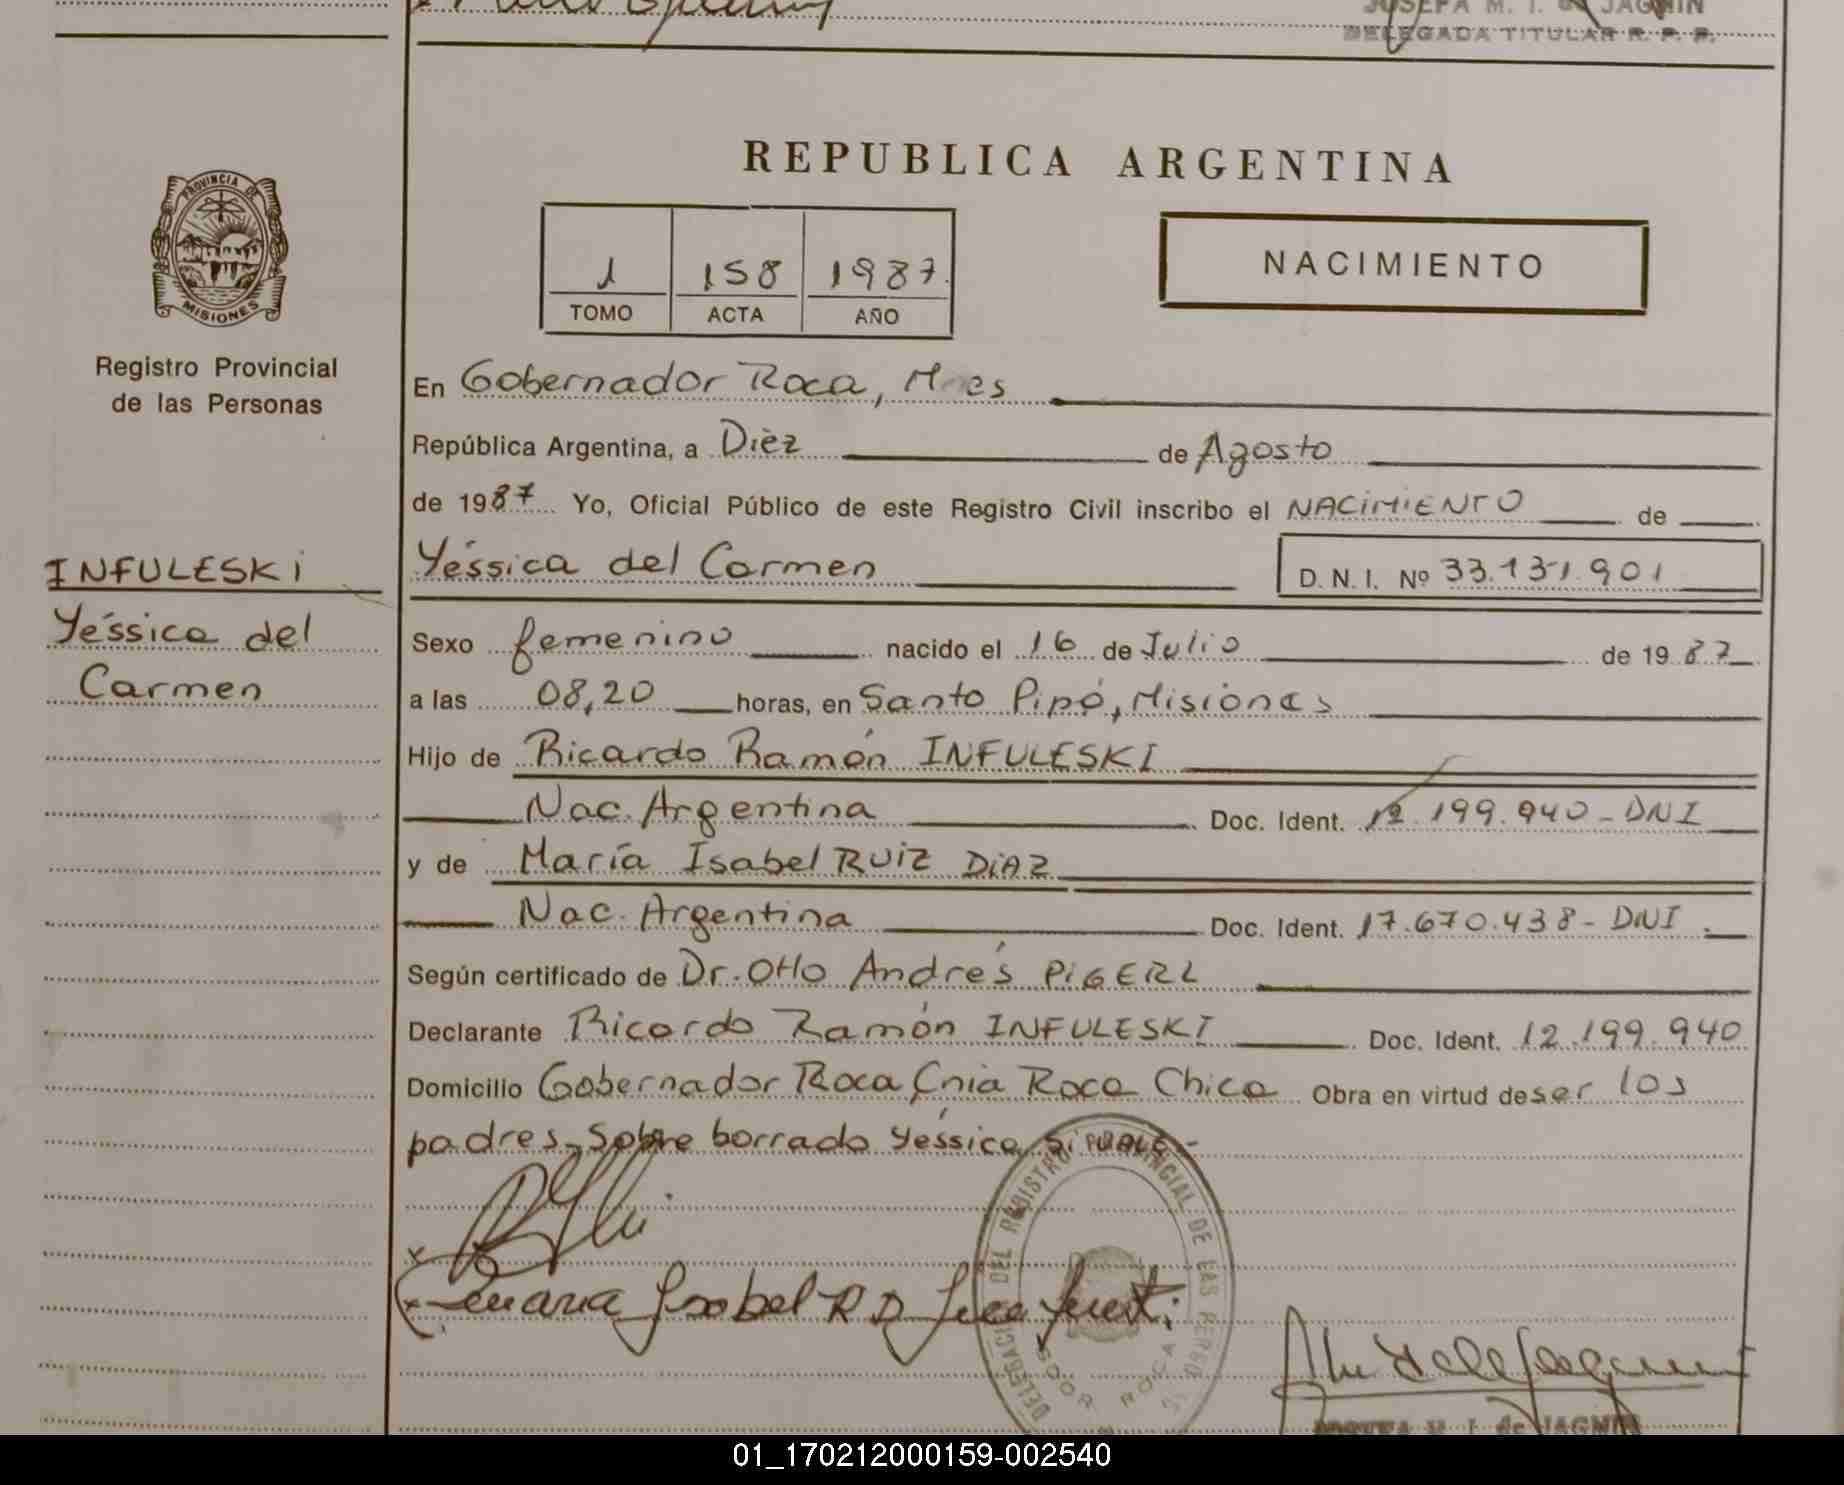 JOSEFA M. I. de JAGNIN
DELEGADA TITULAR R. P. P.
REPUBLICA ARGENTINA
PROVINCIA DE
MISIONES
1 158 1987
TOMO ACTA AÑO
NACIMIENTO
Registro Provincial
de las Personas
En Gobernador Roca, Mnes
República Argentina, a Diez de Agosto
de 1987 Yo, Oficial Público de este Registro Civil inscribo el NACIMIENTO de
INFULESKI
Yéssica del Carmen D. N. I. Nº 33.131.901
Yéssica del
Carmen
Sexo femenino nacido el 16 de Julio de 1987
a las 08,20 horas, en Santo Pipó, Misiones
Hijo de Ricardo Ramón INFULESKI
Nac. Argentina Doc. Ident. 12.199.940 - DNI
y de María Isabel RUIZ DIAZ
Nac. Argentina Doc. Ident. 17.670.438 - DNI.
Según certificado de Dr. Otto Andrés PIGERL
Declarante Ricardo Ramón INFULESKI Doc. Ident. 12.199.940
Domicilio Gobernador Roca Cnia Roca Chica Obra en virtud de ser los
padres, Sobre borrado Yéssica, Si VALE -
DELEGACION DEL REGISTRO PROVINCIAL DE LAS PERSO
ROCA
x
x maria Isabel R D
JOSEFA M. I. de JAGNIN
01_170212000159-002540